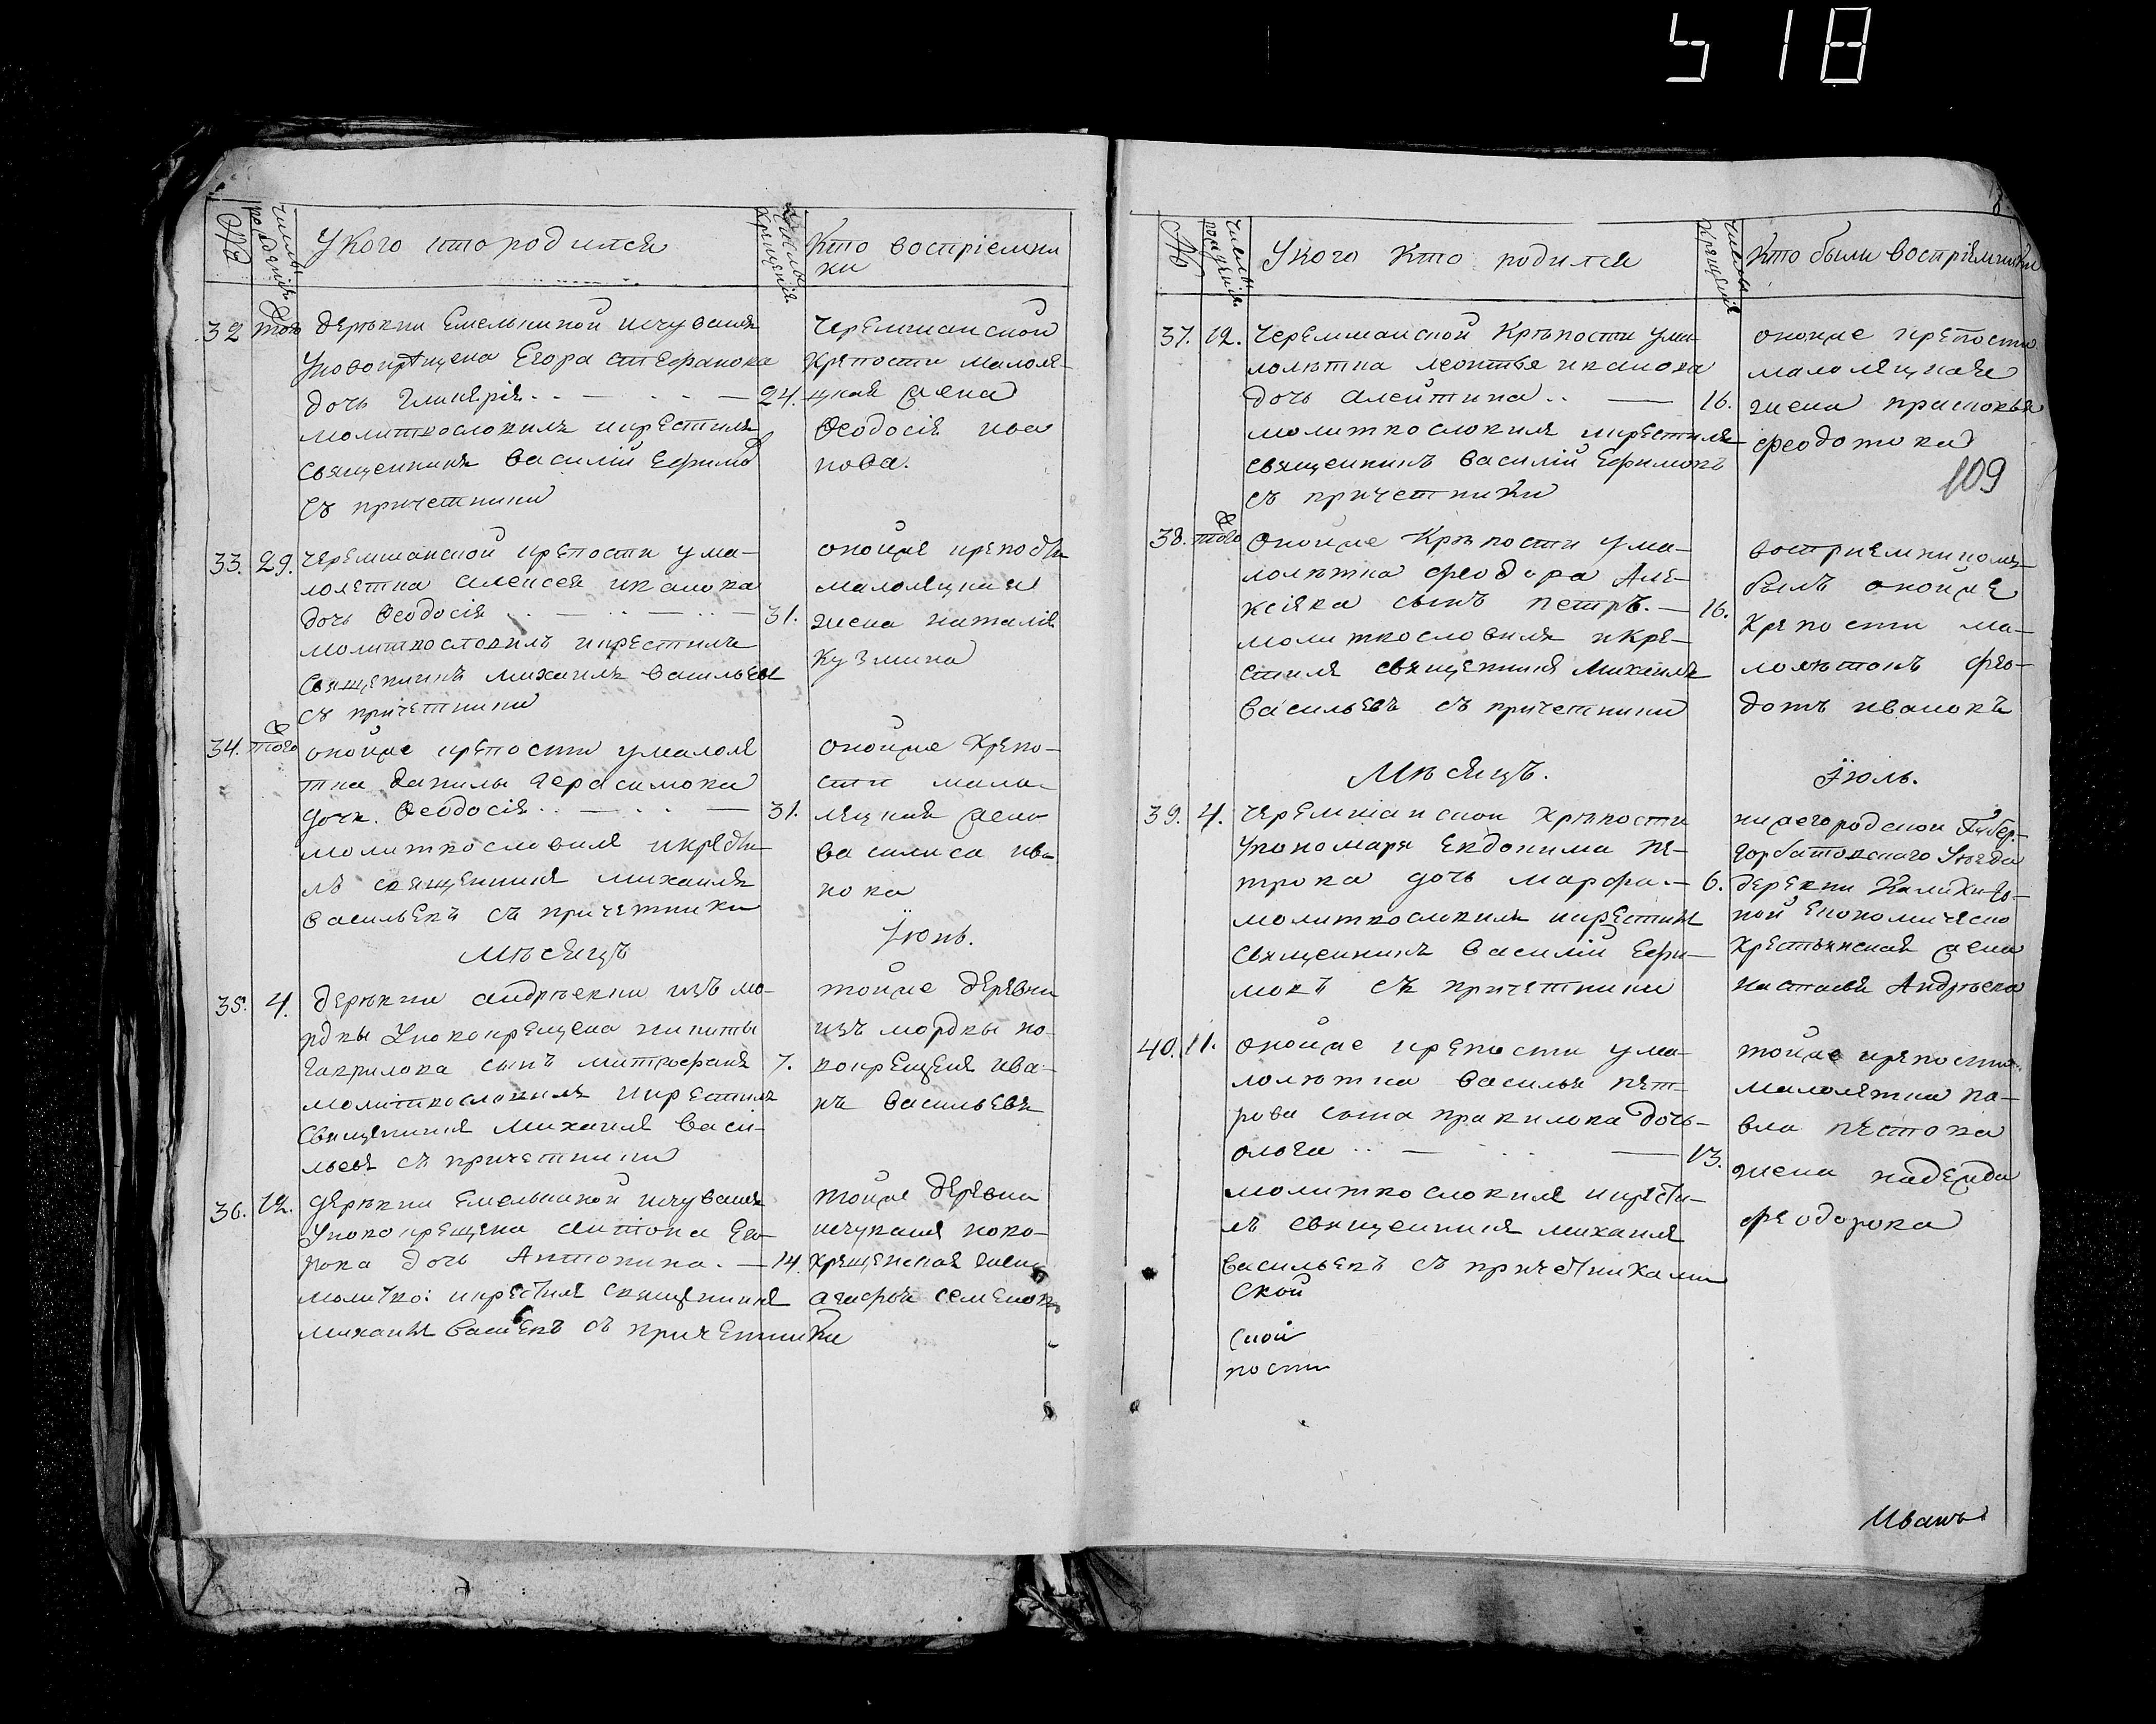 518
№
числы рожденія
У кого кто родился
числы крещенія
Кто воспріемни
ки
32 того деревни Емелькиной исчувашъ
Уновокрещена Егора Стефанова
дочь Гликерія 24.
молитвословилъ икрестилъ
священникъ Василій Ефимо
съ причетники
Черемшанской
крепости малоле-
цкая жена
Феодосія ива
нова.
33. 29. Черемшанской крепости ума-
лолетна Алексея иванова
дочь Феодосія 31.
молитвословилъ икрестилъ
священникъ михаилъ васильевъ
съ причетники
оной же крепости
малолецкая
жена наталія
Кузмина
34. того оной же крепости умалоле
тна данилы Герасимова
дочь Феодосія 31.
молитвословилъ икрести-
лъ священникъ михаилъ
васильевъ съ причетники
оной же Крепо-
сти мало-
лецкая жена
василиса ива
нова
Мѣсяцъ Іюнь.
35. 4. деревни андрѣевки изъ мо-
рдвы Уновокрещена никиты
Гаврилова сынъ митрофанъ 7.
молитвословилъ икрестилъ
священникъ михаилъ Васи-
льевъ съ причетники
той же деревни
изъ мордвы но-
вокрещенъ ива-
нъ васильевъ
36. 12. деревни Емелькиной исчувашъ
Уновокрещена антона Его-
рова дочь Антонина. 14.
молитво: икрестилъ священникъ
михаилъ Васильевъ съ причетники
той же деревни
исчувашъ ново-
крещенская жена
агафья семенова
№
числы рожденія
У кого кто родился
числы крещенія
Кто были воспріемники
37. 12. Черемшанской Крѣпости ума-
лолѣтна леонтья иванова
дочь алевтина 16.
молитвословилъ икрестилъ
священникъ василій Ефимовъ
съ причетники
оной же крепости
малолецкая
жена прасковья
феодотова
109
38. того оной же Крѣпости ума-
лолѣтна феодора Але-
ксіева сынъ петръ. 16.
молитвословилъ икре-
стилъ священникъ михаилъ
васильевъ съ причетники
восприемникомъ
былъ оной же
Крепости ма-
лолѣтокъ фео-
дотъ ивановъ
Мѣсяцъ. Іюль.
39. 4. Черемшанской Крѣпости
Упономаря Евдокима Пе-
трова дочь марфа. 6.
молитвословилъ икрестилъ
священникъ василій Ефи-
мовъ съ причетники
нижегородской Губер-
Горбатовскаго Уезда
деревни
ной Економическо
Крестьянская жена
настасья Андрѣева
40. 11. оной же крепости ума-
лолѣтна василья пет-
рова сына правилова дочь
ольга 13.
молитвословилъ икрести-
лъ священникъ михаилъ
васильевъ съ причетниками
той же крепости
малолетна па-
вла
жена надежда
феодорова
ской
ской
пости
Иванъ